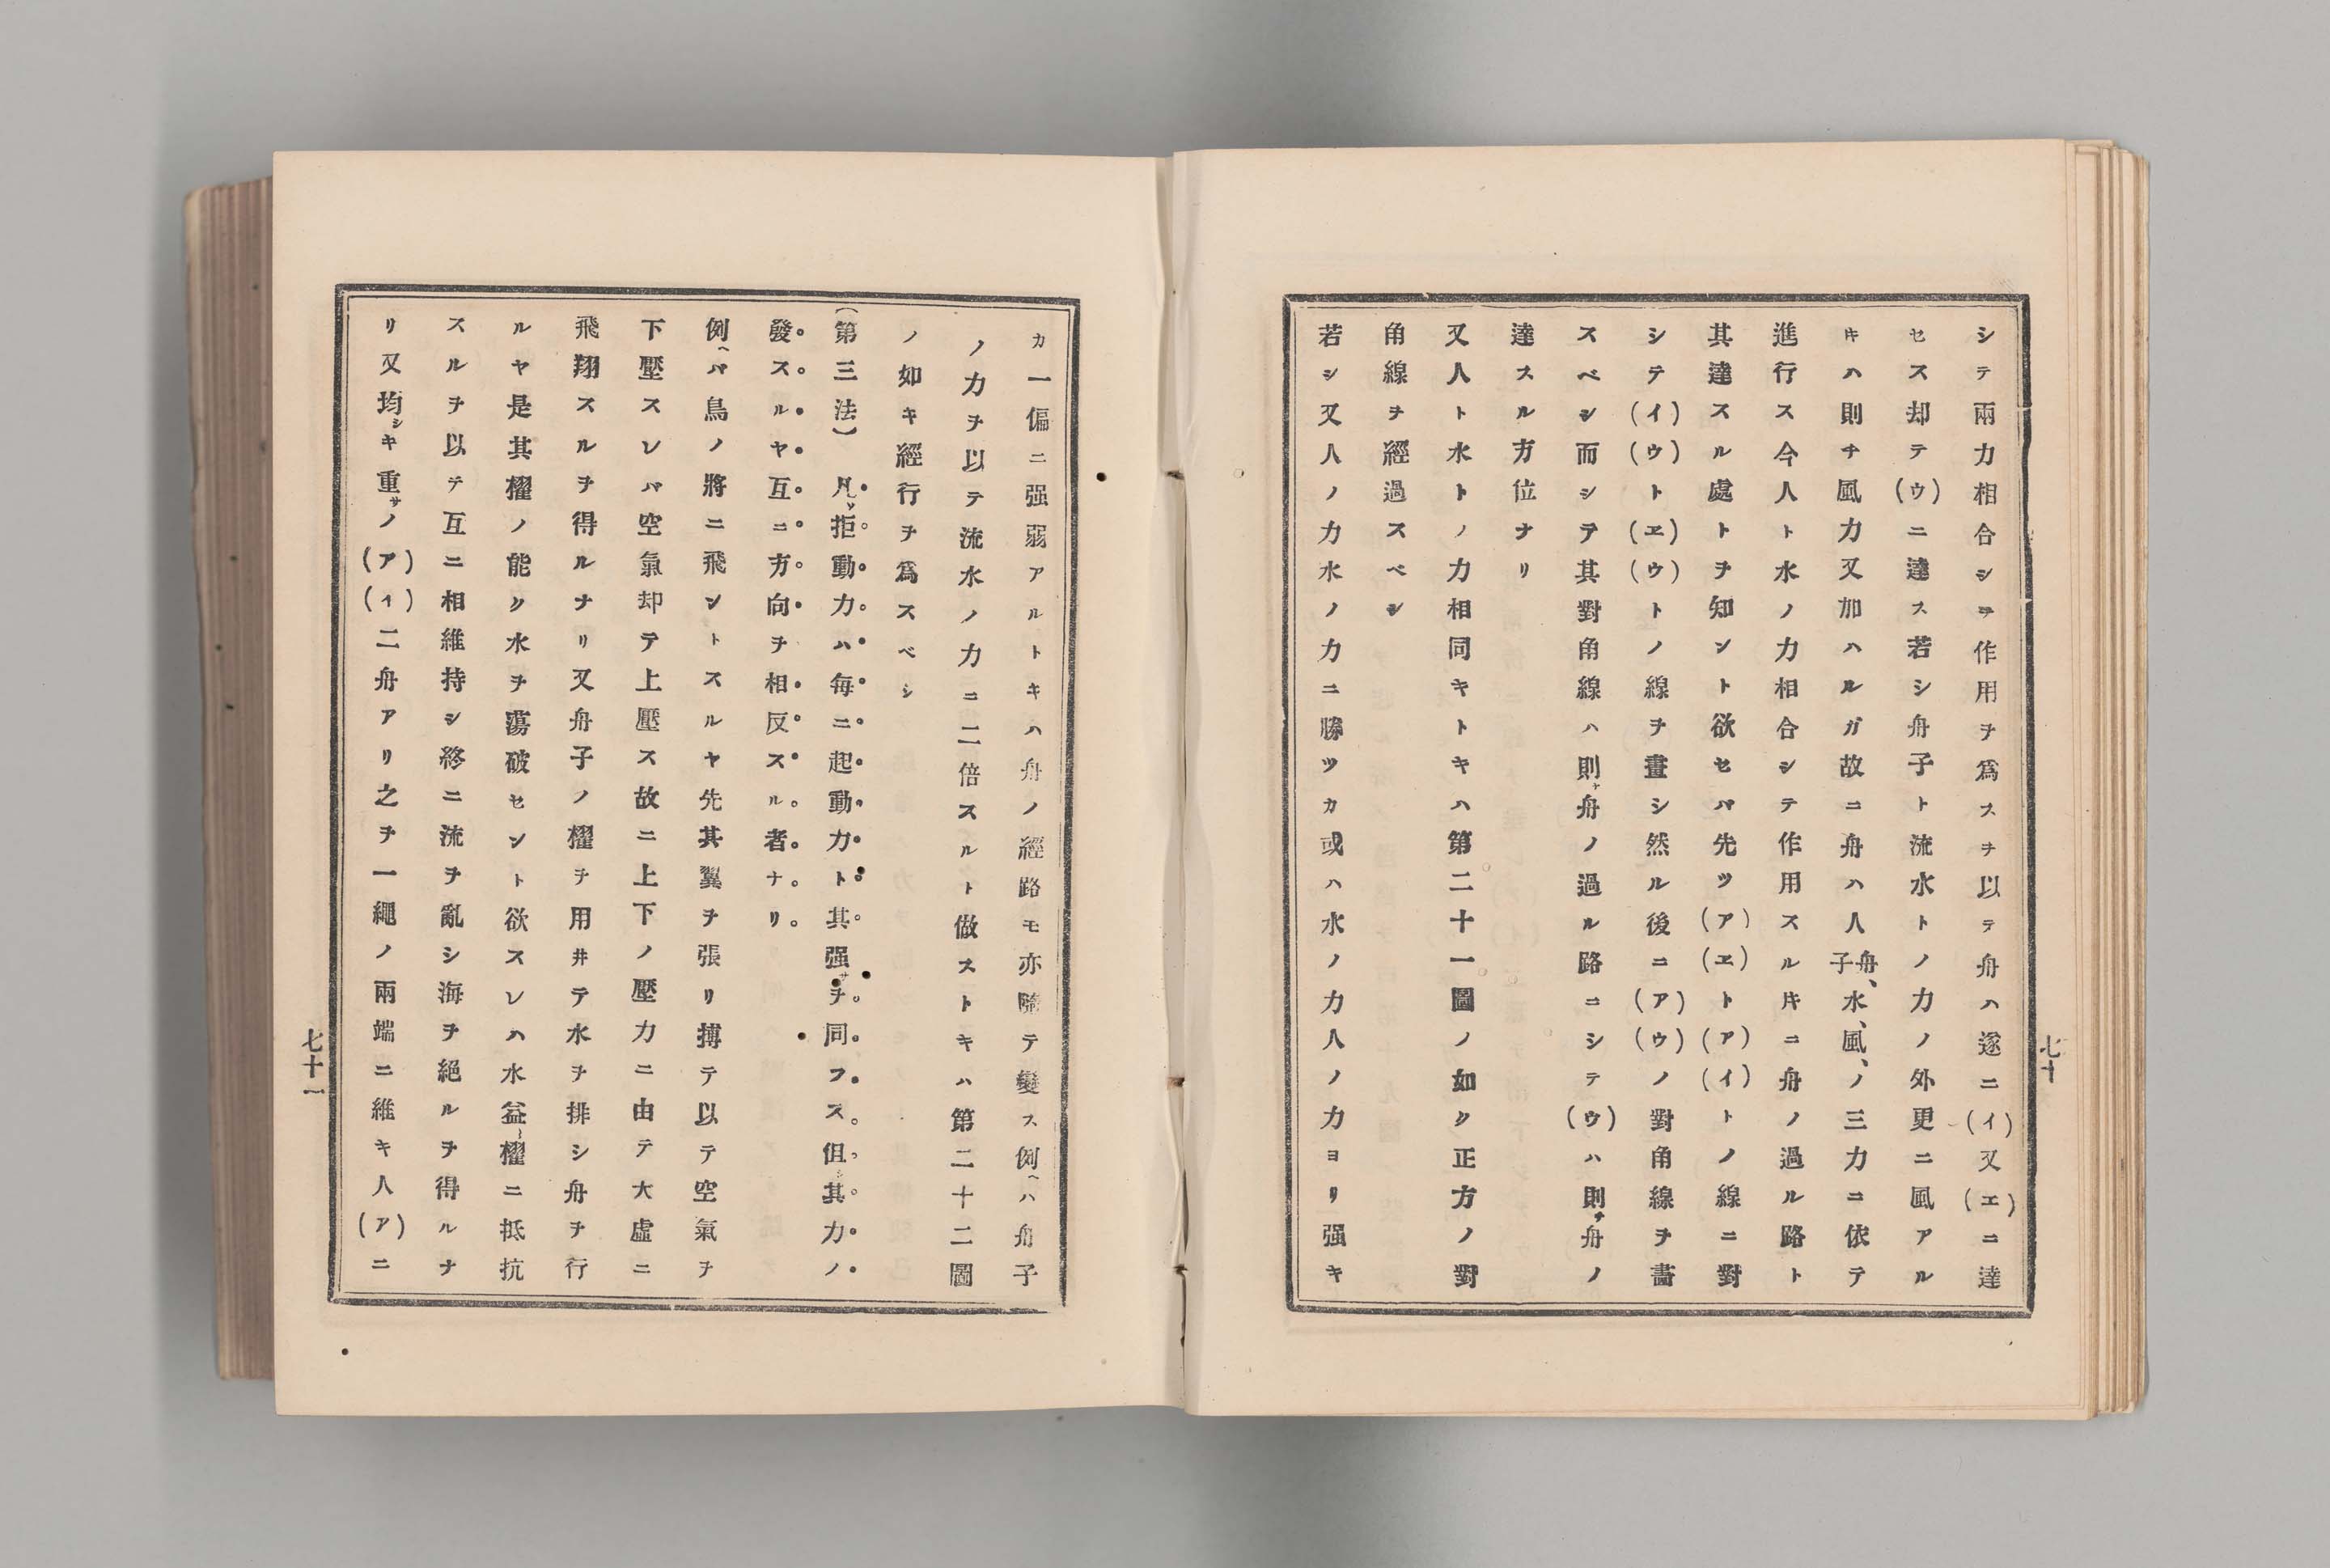 シテ兩力相合シテ作用ヲ爲スヲ以テ舟ハ遂ニ(イ)又(エ)ニ達
セス却テ(ウ)ニ達ス若シ舟子ト流水トノ力ノ外更ニ風アル
キハ則チ風力又加ハルガ故ニ舟ハ人舟子、水、風、ノ三力ニ依テ
進行ス今人ト水ノ力相合シテ作用スル𪜈ニ舟ノ過ル路ト
其達スル處トヲ知ント欲セバ先ツ(ア)(エ)ト(ア)(イ)トノ線ニ對
シテ(イ)(ウ)ト(エ)(ウ)トノ線ヲ畫シ然ル後ニ(ア)(ウ)ノ對角線ヲ畵
スベシ而シテ其對角線ハ則チ舟ノ過ル路ニシテ(ウ)ハ則チ舟ノ
達スル方位ナリ
又人ト水トノ力相同キトキハ第二十一圖ノ如ク正方ノ對
角線ヲ經過スベシ
若シ又人ノ力水ノ力ニ勝ツカ或ハ水ノ力人ノ力ヨリ强キ
七十
カ一偏ニ强弱アルトキハ舟ノ經路モ亦隨テ變ス例ヘハ舟子
ノ力ヲ以テ流水ノ力ニ二倍スルト做ストキハ第二十二圖
ノ如キ經行ヲ爲スベシ
(第三法) 凡ソ拒動力ハ每ニ起動力ト其强サヲ同フス但シ其力ノ
發スルヤ互ニ方向ヲ相反スル者ナリ
例ヘバ鳥ノ將ニ飛ントスルヤ先其翼ヲ張リ搏テ以テ空氣ヲ
下壓スレバ空氣却テ上壓ス故ニ上下ノ壓力ニ由テ大虛ニ
飛翔スルヲ得ルナリ又舟子ノ櫂ヲ用井テ水ヲ排シ舟ヲ行
ルヤ是其櫂ノ能ク水ヲ蕩破セント欲スレハ水益〻櫂ニ抵抗
スルヲ以テ互ニ相維持シ終ニ流ヲ亂シ海ヲ絕ルヲ得ルナ
リ又均シキ重サノ(ア)(イ)二舟アリ之ヲ一繩ノ兩端ニ維キ人(ア)ニ
七十一